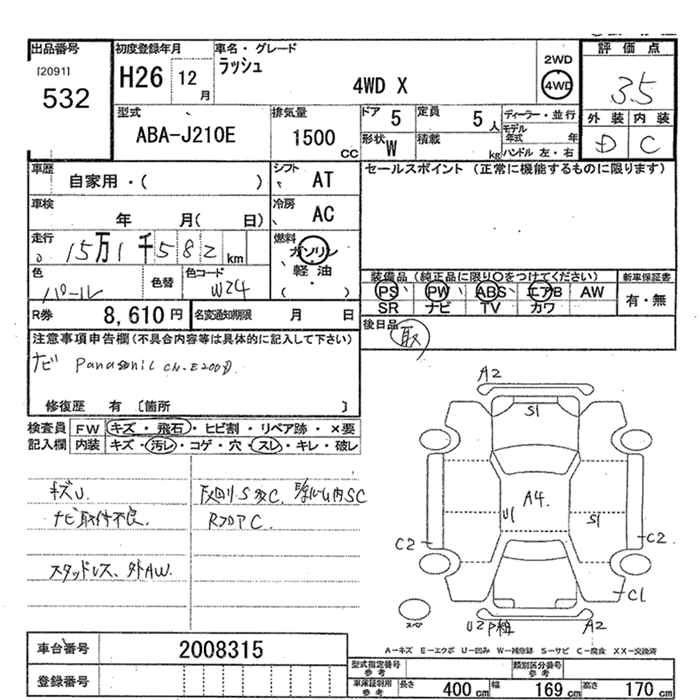 出品番号 初度登録年月 車名・グレード 評価点
[2091] H26 12月 ラッシュ 4WD X 2WD 4WD 3.5
532
型式 排気量 ドア 5 定員 5人 ディーラー・並行 外装 内装
ABA-J210E 1500cc 形状 W 積載 kg モデル年式 年 D C
ハンドル 左・右
車歴 自家用・( ) シフト AT セールスポイント (正常に機能するものに限ります)
車検 年 月(日) 冷房 AC
走行 15万1千582km 燃料 ガソリン
軽油
( )
色 パール 色替 色コード W24 装備品 (純正品に限り○をつけてください) 新車保証書
PS PW ABS エアB AW 有・無
SR ナビ TV カワ
R券 8,610円 名変通知期限 月 日 後日品 取
注意事項申告欄(不具合内容等は具体的に記入して下さい)
ナビ Panasonic CN-E200D
修復歴 有 [箇所 ]
検査員 FW キズ・飛石・ヒビ割・リペア跡・×要
記入欄 内装 キズ・汚レ・コゲ・穴・スレ・キレ・破レ
キズU
ナビ取付不良
RフロアC
スタッドレス、外AW.
A2
S1
A4
U1 S1
C2 C2
C1
U2 A2
A-キズ E-エクボ U-凹み W-補修跡 S-サビ C-腐食 XX-交換済
車台番号 2008315
登録番号 型式指定番号 参考 類別区分番号 参考
車庫証明用 参考 長さ 400cm 幅 169cm 高さ 170cm